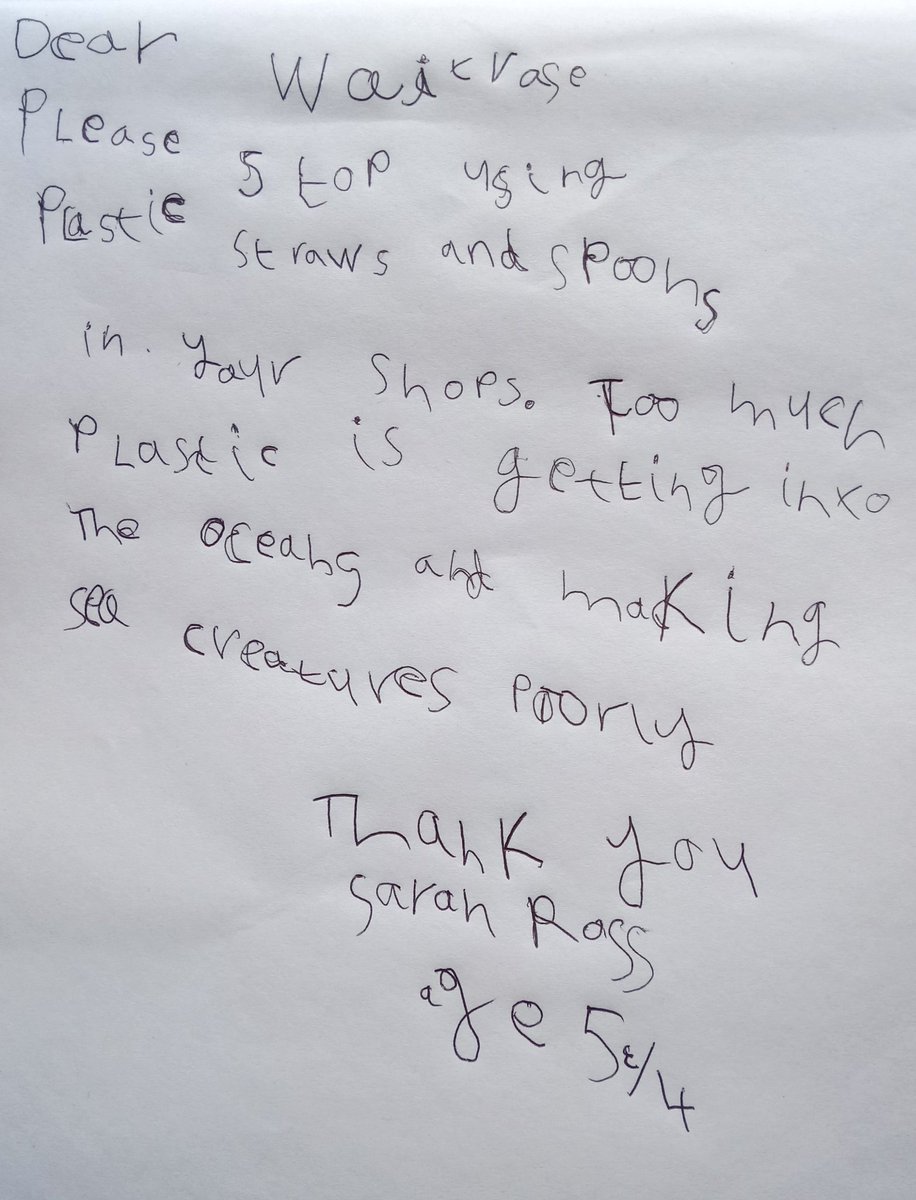 Dear Waitrose
Please stop using
Plastic straws and spoons
in your shops. Too much
Plastic is getting into
The oceans and making
sea creatures poorly
Thank you
Sarah Ross
age 5 3/4